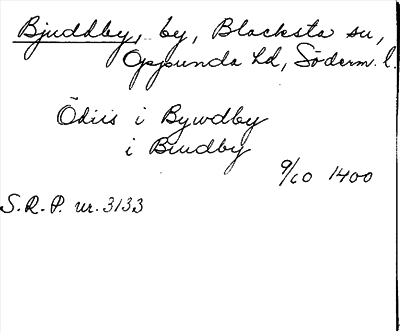 Bjuddby, by, Blacksta sn,
Oppunda hd, Söderm. l.
Ödiis i Bywdby
i Biudby
9/10 1400
S.R.P. nr. 3133